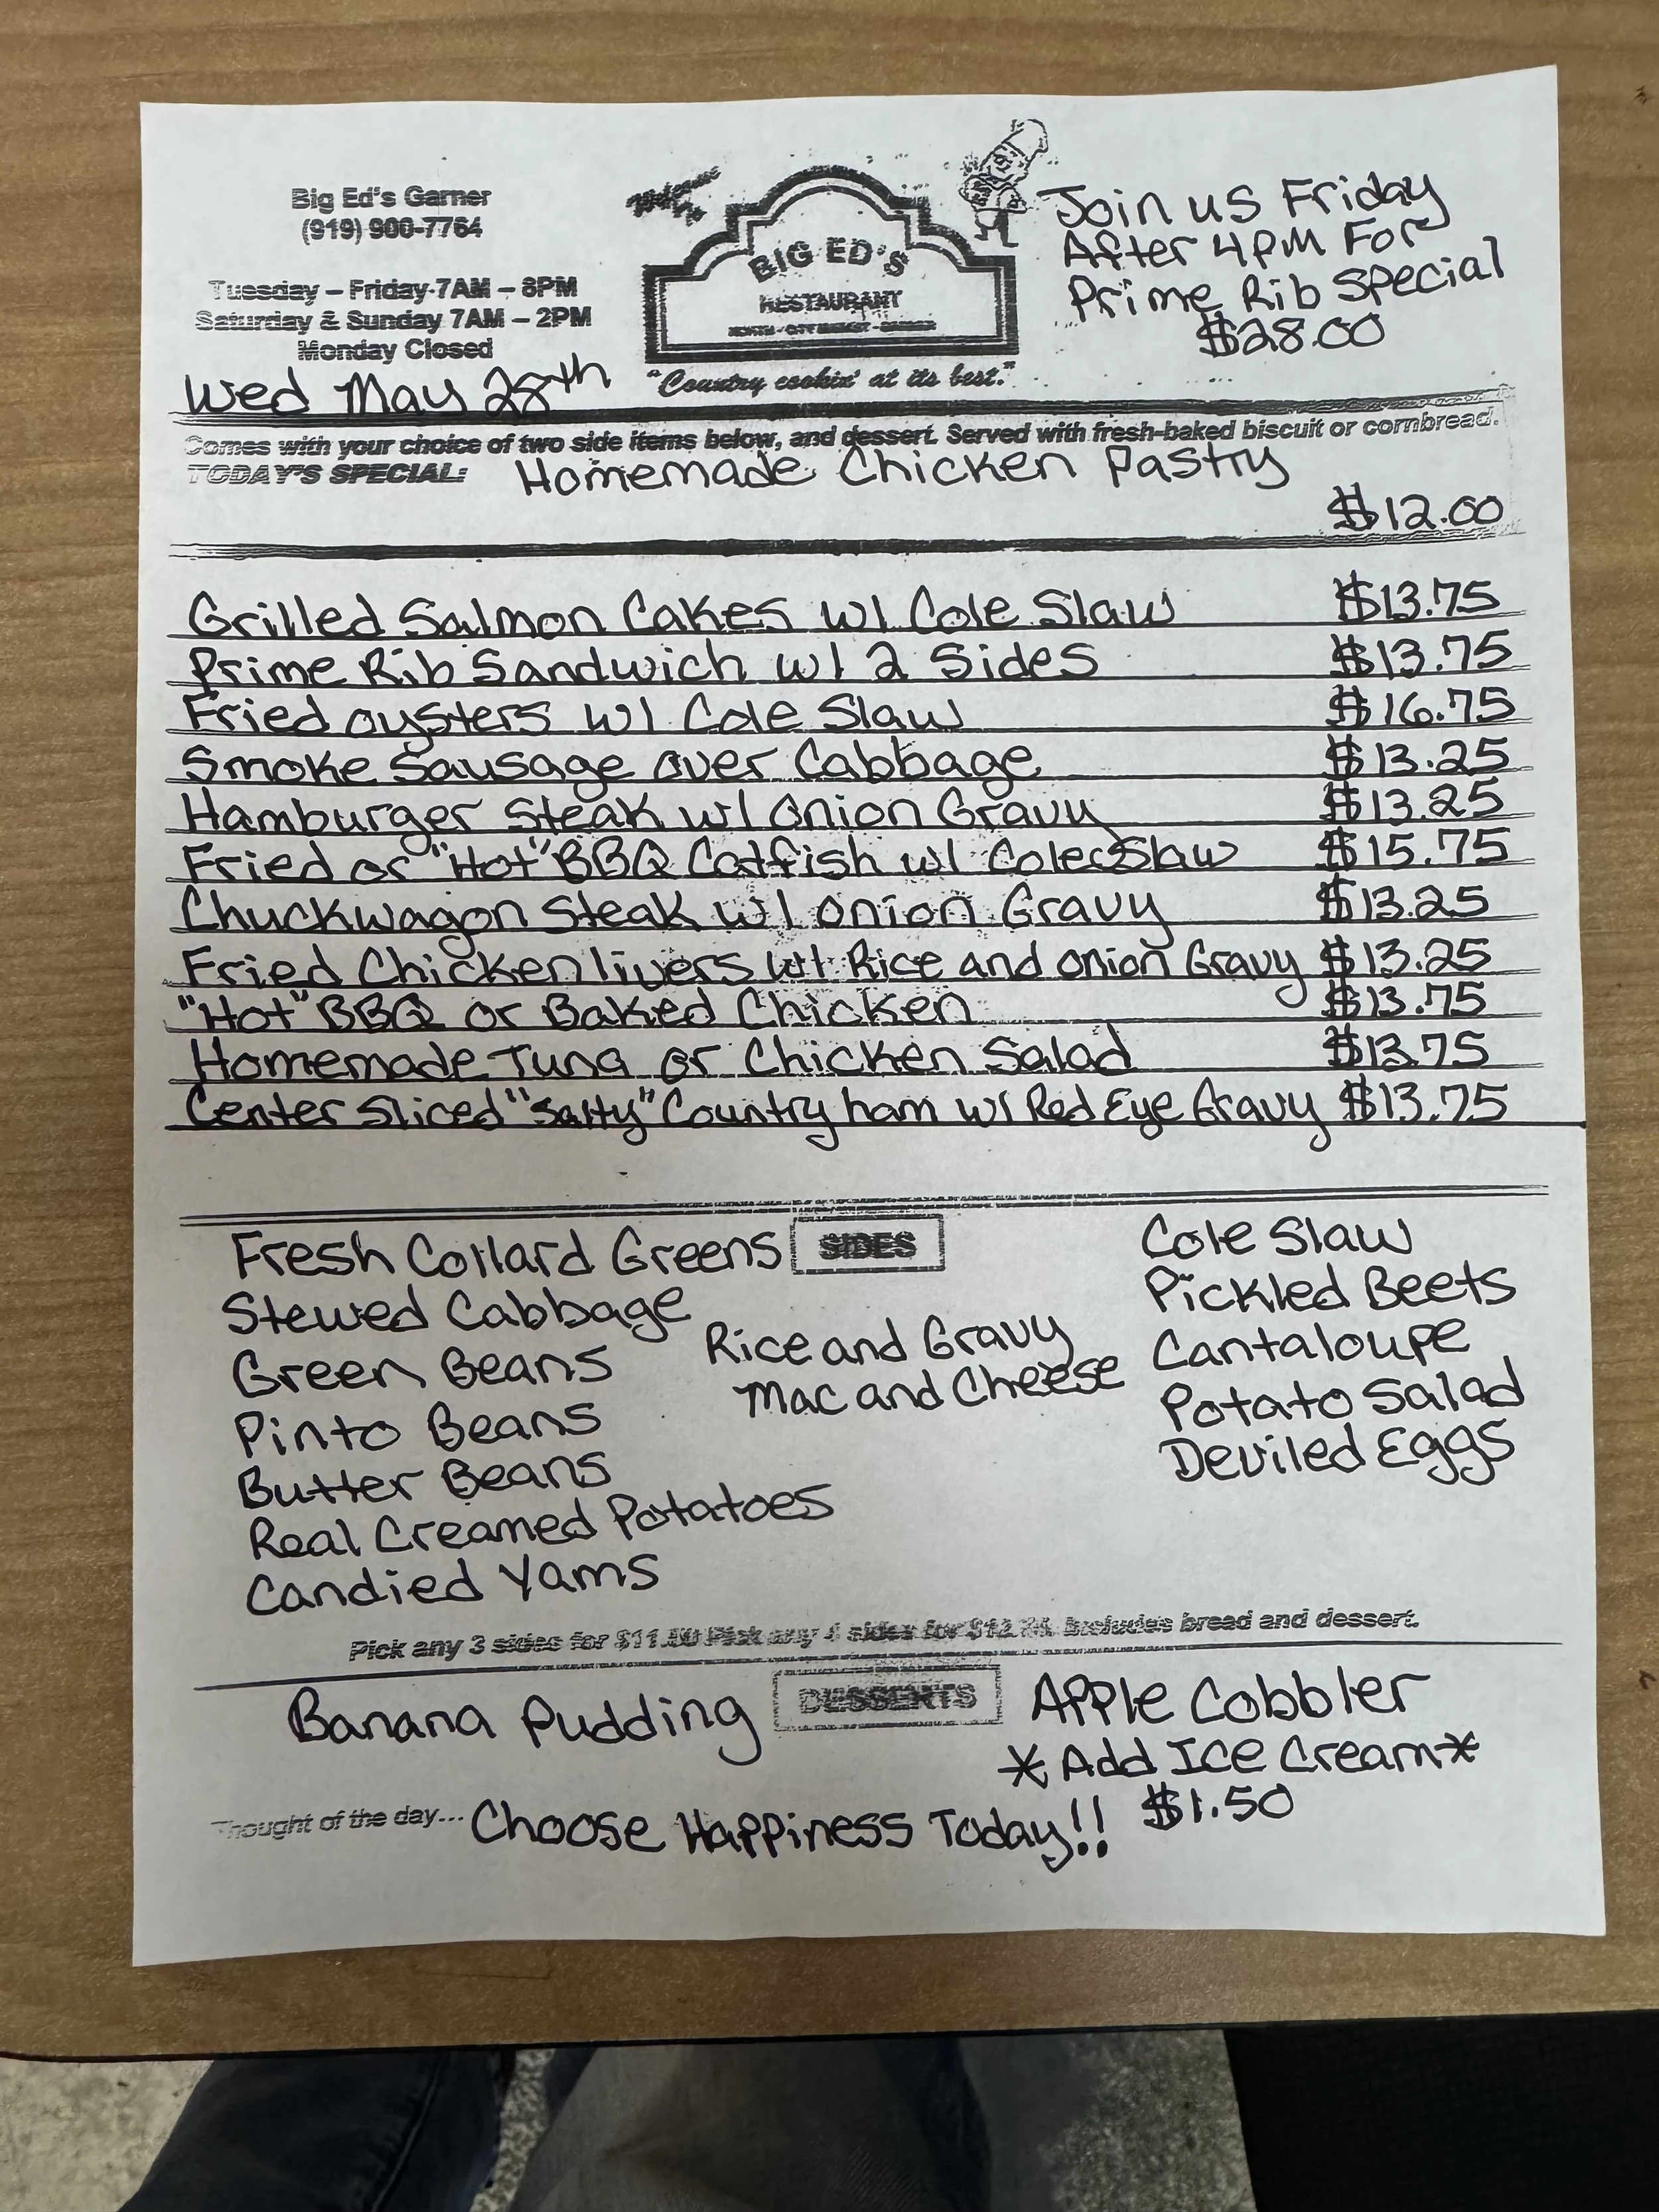 Big Ed's Garner
(919) 900-7764
Tuesday – Friday 7AM – 8PM
Saturday & Sunday 7AM – 2PM
Monday Closed
Wed May 28th
BIG ED'S
RESTAURANT
"Country cookin' at its best."
Join us Friday
After 4PM For
Prime Rib Special
$28.00
Comes with your choice of two side items below, and dessert. Served with fresh-baked biscuit or cornbread.
TODAY'S SPECIAL: Homemade Chicken Pastry
$12.00
Grilled Salmon Cakes w/ Cole Slaw $13.75
Prime Rib Sandwich w/ 2 Sides $13.75
Fried oysters w/ Cole Slaw $16.75
Smoke Sausage over Cabbage $13.25
Hamburger Steak w/ Onion Gravy $13.25
Fried or "Hot" BBQ Catfish w/ Cole Slaw $15.75
Chuckwagon Steak w/ Onion Gravy $13.25
Fried Chicken livers w/ Rice and Onion Gravy $13.25
"Hot" BBQ or Baked Chicken $13.75
Homemade Tuna or Chicken Salad $13.75
Center Sliced "Salty" Country ham w/ Red Eye Gravy $13.75
SIDES
Fresh Collard Greens
Stewed Cabbage
Green Beans
Pinto Beans
Butter Beans
Real Creamed Potatoes
Candied Yams
Rice and Gravy
Mac and Cheese
Cole Slaw
Pickled Beets
Cantaloupe
Potato Salad
Deviled Eggs
Pick any 3 sides for Pick any 4 sides for Includes bread and dessert.
DESSERTS
Banana Pudding
Apple Cobbler
* Add Ice Cream*
$1.50
Thought of the day... Choose Happiness Today!!